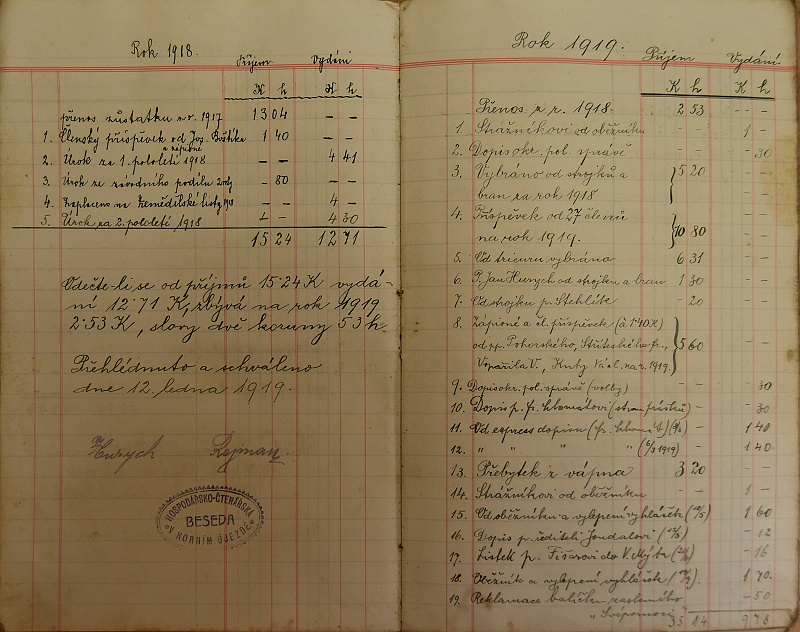 Rok 1918.
Příjem Vydání
K h K h
přenos zůstatku z r. 1917 13 04 – –
1. Členský příspěvek od Jos. 1 40
a zápisné
2. Úrok za 1. pololetí 1918 – – 4 41
3. Úrok ze závodního podílu – 80
4. Zaplaceno na Zemědělské listy 1918 4 –
5. Úrok za 2. pololetí 1918 – – 4 30
15 24 12 71
Odečte-li se od příjmů 15·24 K vydá-
ní 12·71 K, zbývá na rok 1919
2·53 K, slovy dvě koruny 53 h.
Přehlédnuto a schváleno
dne 12. ledna 1919.
Hurych Rejman
HOSPODÁŘSKO-ČTENÁŘSKÁ
BESEDA
V HORNÍM ÚJEZDĚ
Rok 1919.
Příjem Vydání
K h K h
Přenos z r. 1918. 2 53 – –
1. Strážníkovi od oběžníku – – 1 –
2. Dopis okr. pol. správě – – – 30
3. Vybráno od strojků a 5 20
bran za rok 1918
4. Příspěvek od 27 členů
na rok 1919. 10 80
5. Od trieuru vybráno 6 31
6. P. Jan Hurych od strojku a bran 1 30
7. Od strojku p. Stehlík – 20
8. Zápisné a čl. příspěvek (à 1·40 K)
od pp. Pohorského, Stříteského fr., 5 60
Vospářila V., Kuby Václ. na r. 1919.
9. Dopis okr. pol. správě (volby) – – – 30
10. Dopis p. fr. – – 30
11. Od express dopisu 1 40
12. " " " " (6/3 1919) – 1 40
13. Přebytek z vápna 3 20 – –
14. Strážníkovi od oběžníku 1 –
15. Od oběžníku a vylepení vyhlášek 1 60
16. Dopis p. řediteli Jondalovi – 12
17. Lístek p. Fišarovi do V. Mýta – 16
18. Oběžník a vylepení vyhlášek 1 70.
19. Reklamace balíčku zaslaného – 50
"Svépomoci" 35 14 9 78